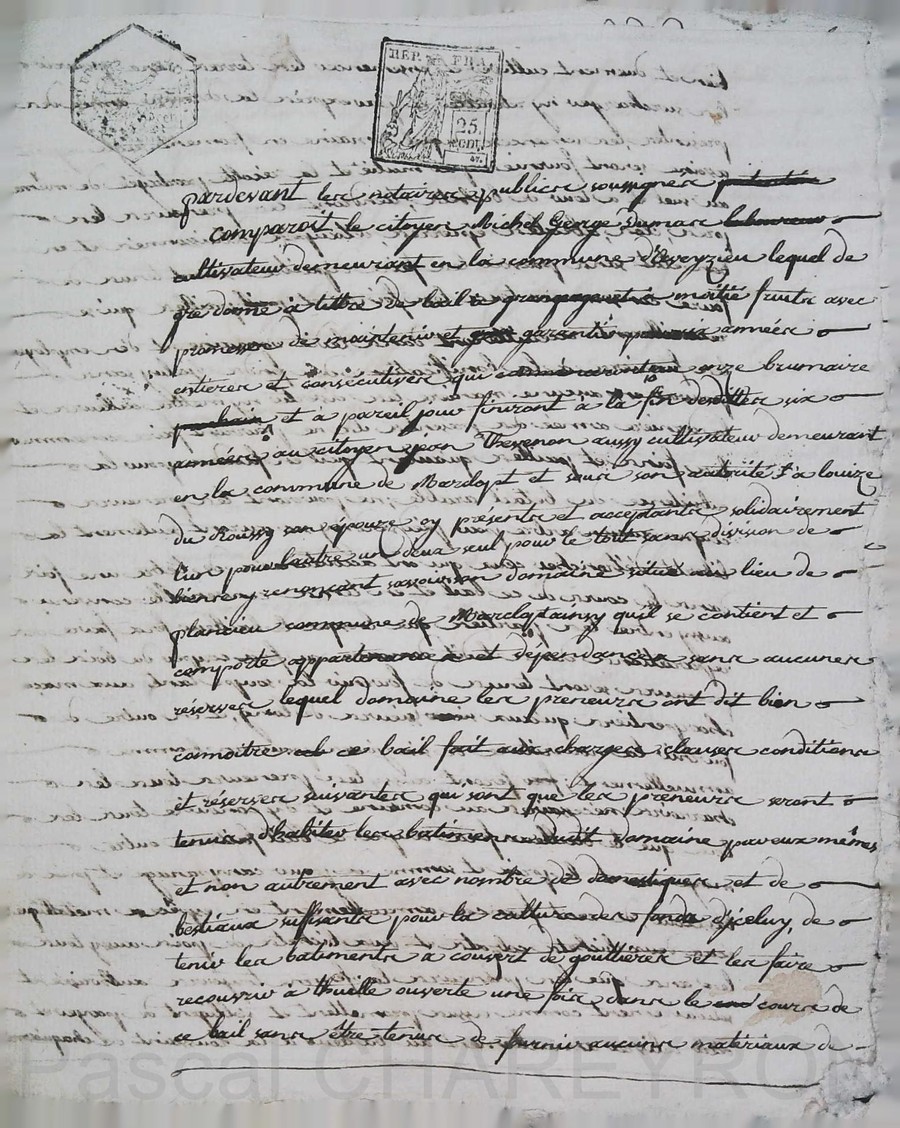 REP. FRA.
25.
CENT.
pardevant les notaires publics soussignes
comparoît le citoyen Michel George Dumas
cultivateur demeurant en la commune d'Eveyzieu lequel de
gre donne à tittre de bail a grangeage et a moitié fruits avec
promesse de maintenir et garantir années
entieres et consécutives qui onze brumaire
et à pareil jour finront à la fin desdittes six
années au citoyen jean Thevenon aussy cultivateur demeurant
en la commune de et sous son autorité a louize
du Roussy son épouse cy présents et acceptants solidairement
l'un pour l'autre un deux seul pour le tout sans division de
biens y renonçant domaine situé au lieu de
plancieu commune de ainsy quil se contient et
comporte appartenances et dépendances sans aucunes
reserves lequel domaine les preneurs ont dit bien
connoître ce bail fait aux charges clauses conditions
et réserves suivantes qui sont que les preneurs seront
tenus d'habiter les batimens dudit domaine par eux mêmes
et non autrement avec nombre de domestiques et de
bestiaux suffisants pour la culture des fonds d'jceluy, de
tenir les batiments a couvert de gouttieres et les faire
recouvrir à thuille ouverte une fois dans le cours de
ce bail sans être tenus de fournir aucuns matériaux de
Pascal CHAREYRON